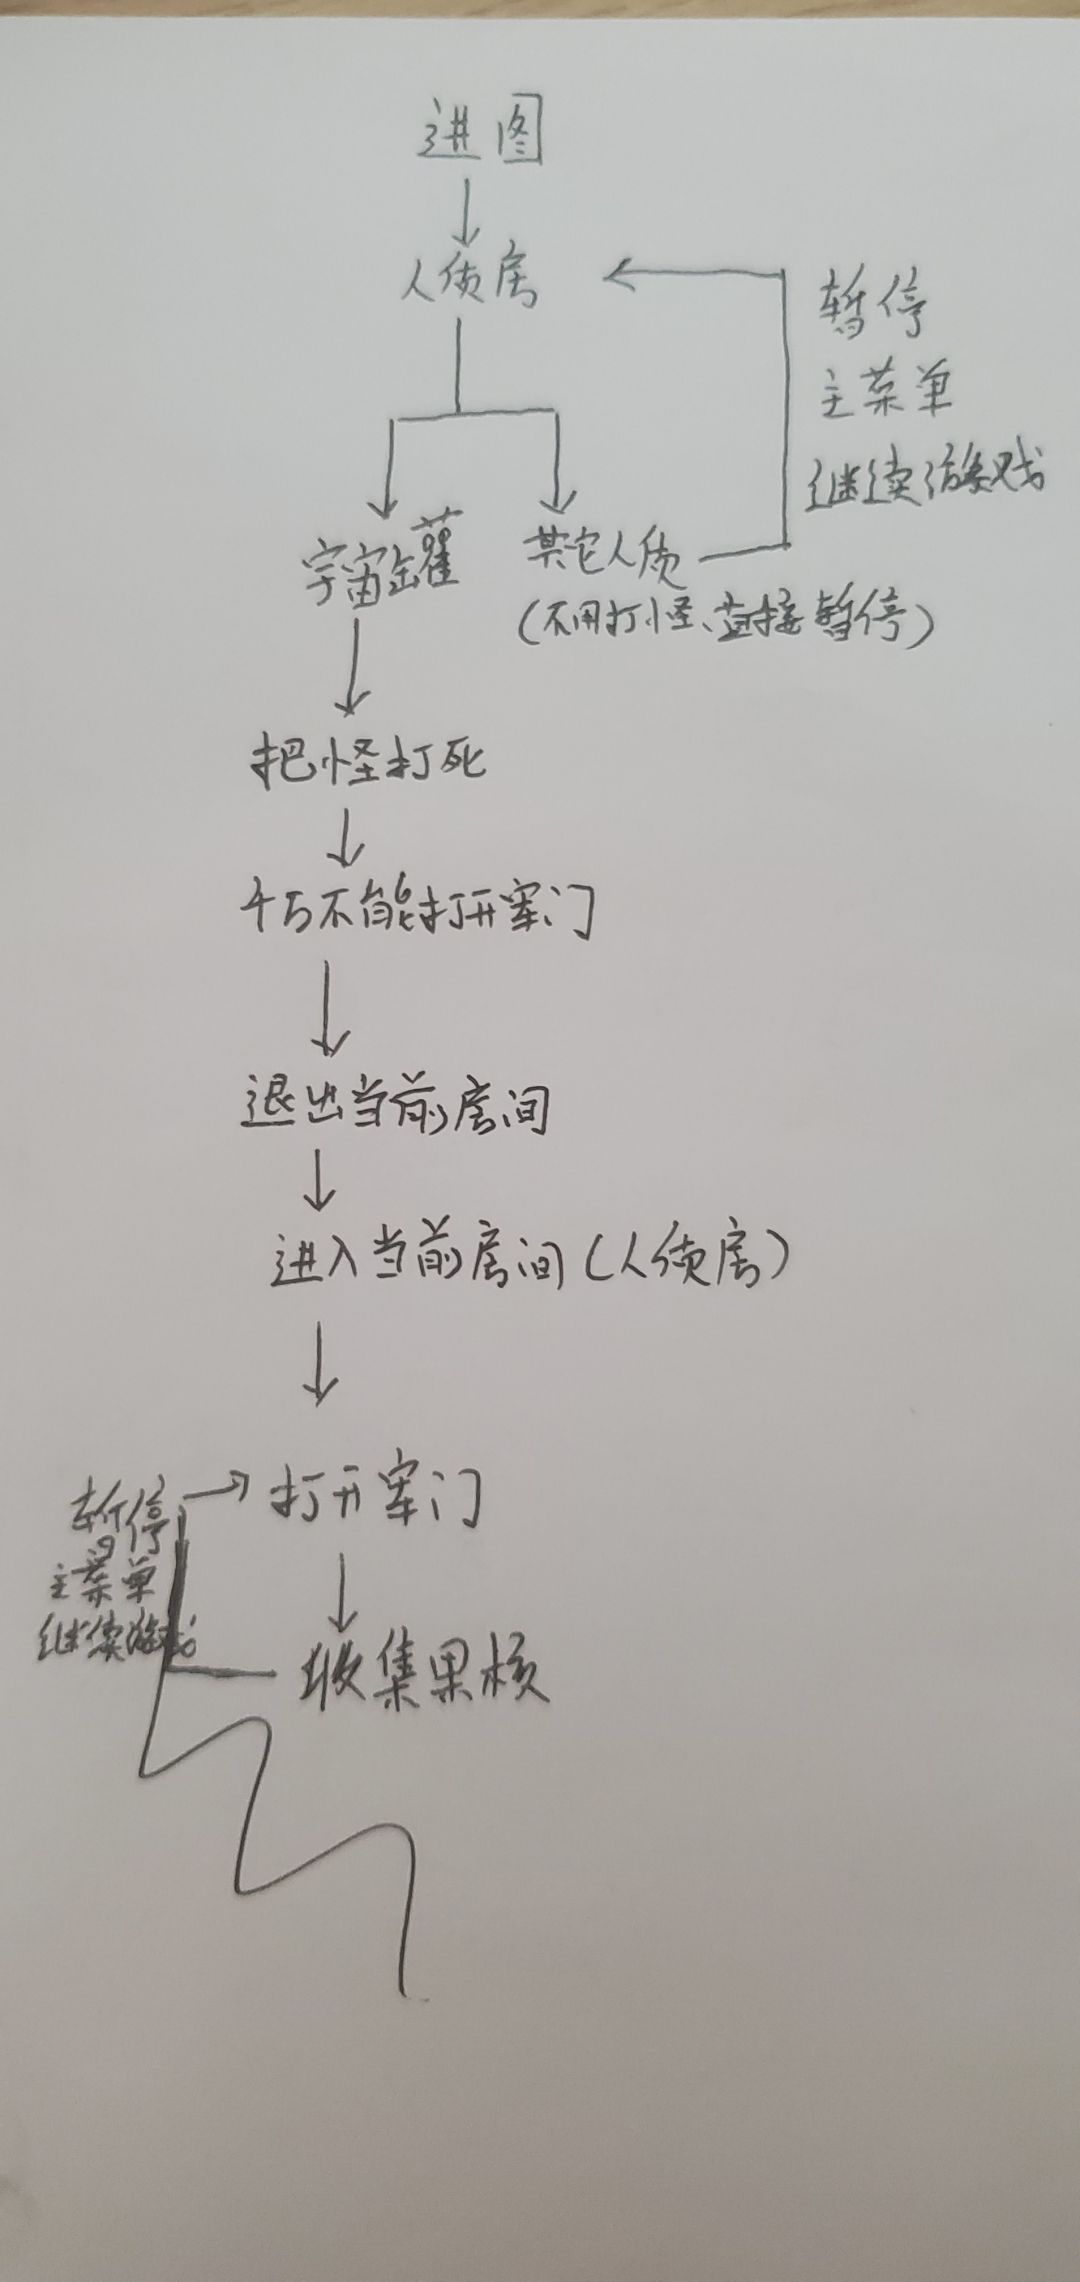 进图
人质房
暂停
主菜单
继续游戏
宇宙罐
其它人质
(不用打怪、直接暂停)
把怪打死
千万不能打开牢门
退出当前房间
进入当前房间(人质房)
打开牢门
暂停
主菜单
继续游戏
收集果核